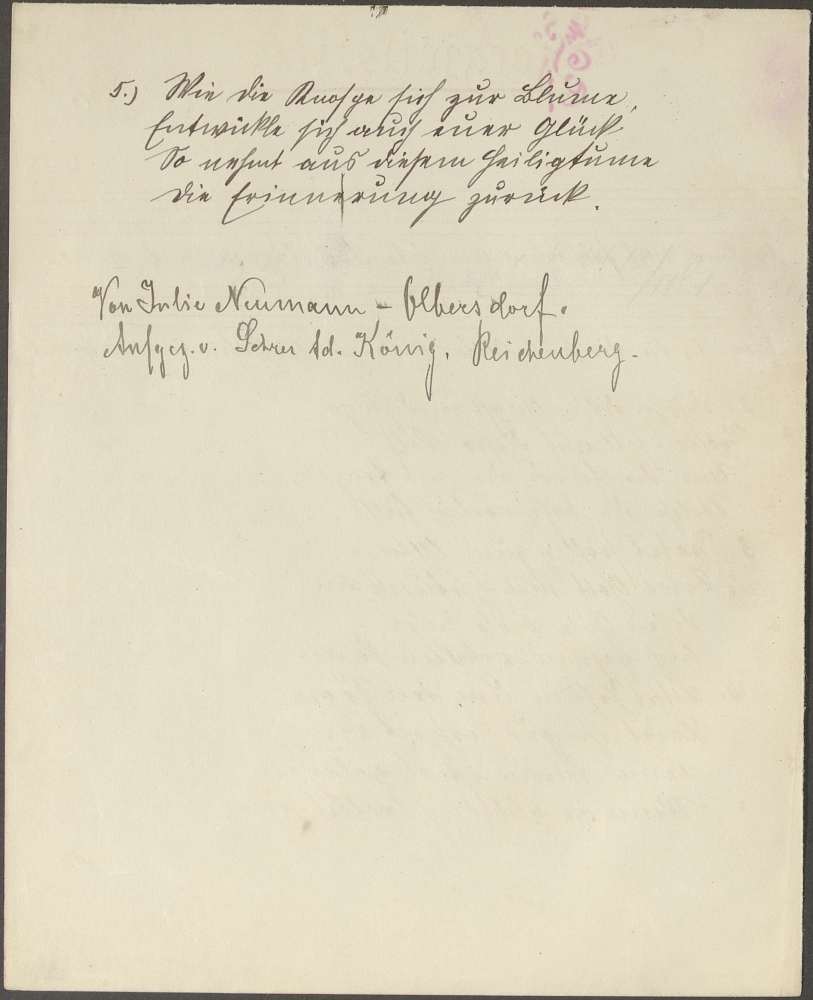 5.) Wie die Knospe sich zur Blume,
Entwickle sich auch euer Glück
So nehmt aus diesem Heiligtume
Die Erinnerung zurück.
Von Julie Neumann - Olbersdorf.
Aufgez. v. Lehrer Ed. König, Reichenberg.